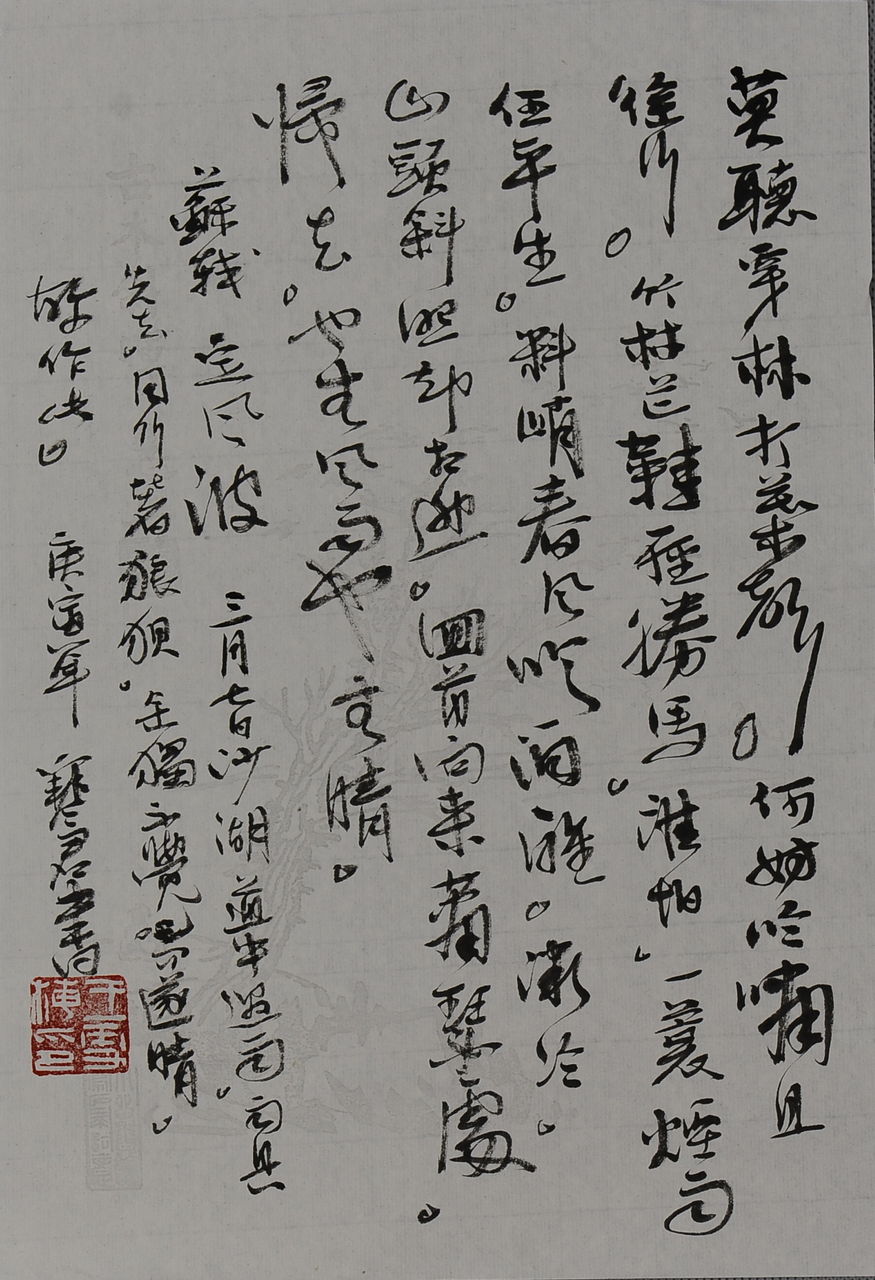 莫聽穿林打葉聲。何妨吟嘯且
徐行。竹杖芒鞋輕勝馬。誰怕，一蓑煙雨
任平生。料峭春風吹酒醒。微冷。
山頭斜照却相迎。回首向来蕭瑟處。
歸去。也无風雨也无晴。
蘇軾 定風波 三月七日沙湖道中遇雨，雨具
先去，同行皆狼狽。余獨不覺。已而遂晴。
故作此。 庚寅年 書